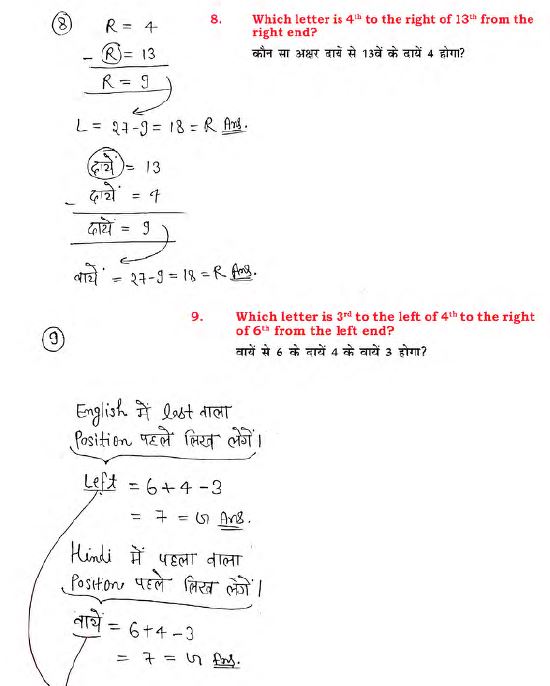 8. Which letter is 4th to the right of 13th from the right end?
कौन सा अक्षर दायें से 13वें के दायें 4 होगा?
8 R = 4
- R = 13
R = 9
L = 27-9 = 18 = R Ans.
दायें = 13
- दायें = 4
दायें = 9
बायें = 27-9 = 18 = R Ans.
9. Which letter is 3rd to the left of 4th to the right of 6th from the left end?
बायें से 6 के दायें 4 के बायें 3 होगा?
9
English में last वाला
Position पहले लिख लेगें।
Left = 6+4-3
= 7 = G Ans.
Hindi में पहला वाला
Position पहले लिख लेगें।
बायें = 6+4-3
= 7 = G Ans.